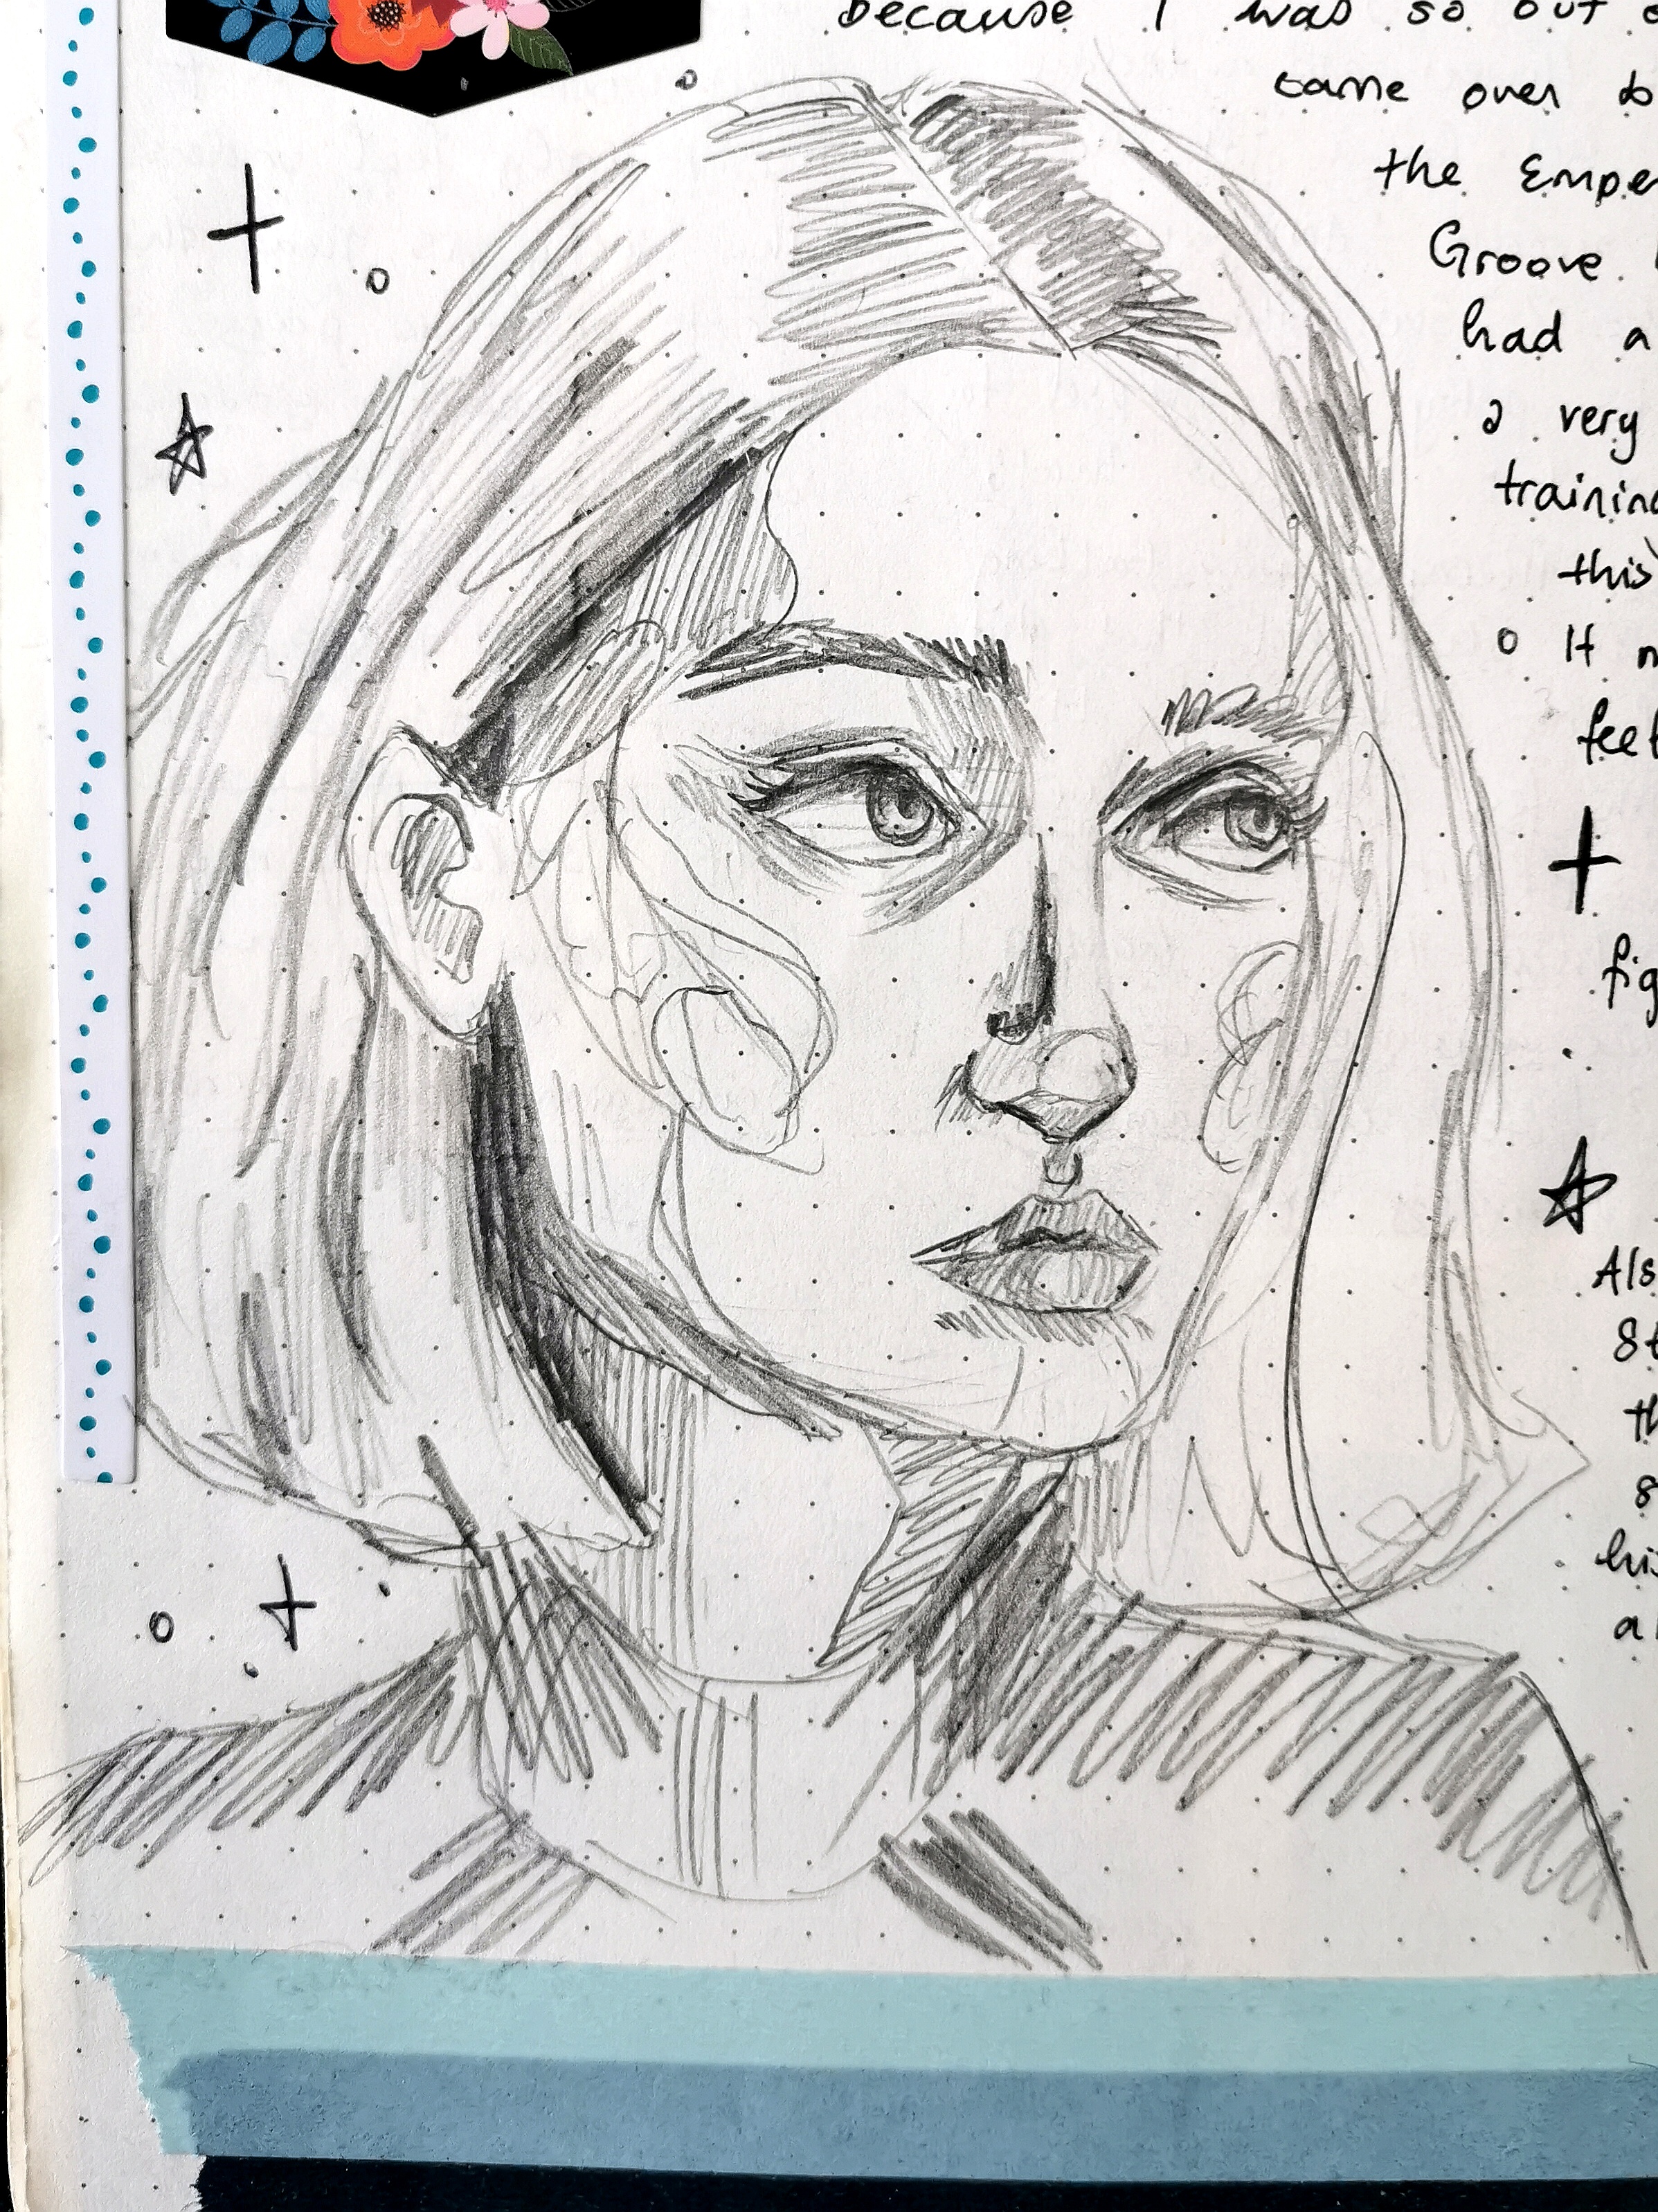 because I was so out
came over to
the Empe
Groove
had a
a very
training
this
It
feel
fig
Als
8t
th
8
his
al